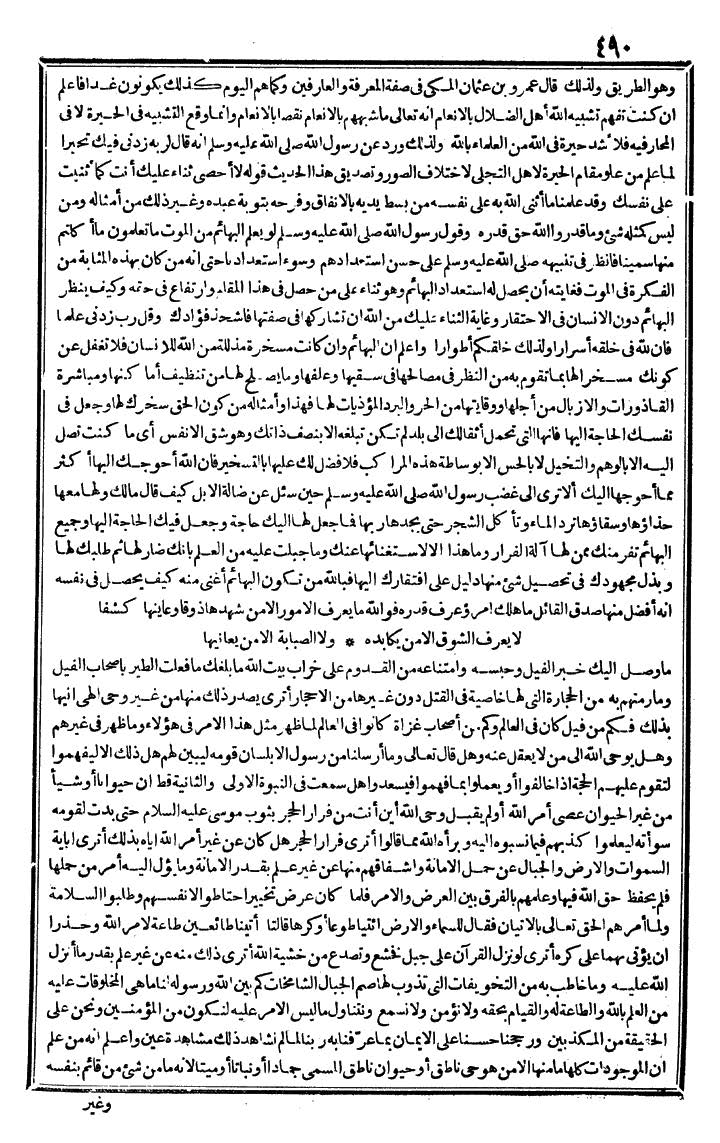 ٤٩٠
وهو الطريق ولذلك قال عمرو بن عثمان المكى فى صفة المعرفة والعارفين وكما هم اليوم كذلك يكونون غدا فاعلم
ان كنت تفهم تشبيه الله أهل الضلال بالانعام انه تعالى ما شبههم بالانعام نقصا بالانعام وانما وقع التشبيه فى الحيرة لا فى
المحار فيه فلا أشد حيرة فى الله من العلماء بالله ولذلك ورد عن رسول الله صلى الله عليه وسلم انه قال لربه زدنى فيك تحيرا
لما علم من علو مقام الحيرة لاهل التجلى لاختلاف الصور وتصديق هذا الحديث قوله لا أحصى ثناء عليك أنت كما أثنيت
على نفسك وقد علمنا ما أثنى الله به على نفسه من بسط يديه بالانفاق وفرحه بتوبة عبده وغير ذلك من أمثاله ومن
ليس كمثله شئ وما قدروا الله حق قدره وقول رسول الله صلى الله عليه وسلم لو يعلم البهائم من الموت ما تعلمون ما أكلتم
منها سمينا فانظر فى تنبيهه صلى الله عليه وسلم على حسن استعدادهم وسوء استعدادنا حتى انه من كان بهذه المثابة من
الفكرة فى الموت فغايته أن يحصل له استعداد البهائم وهو ثناء على من حصل فى هذا المقام وارتفاع فى حقه وكيف ينظر
البهائم دون الانسان فى الاحتقار وغاية الثناء عليك من الله ان تشاركها فى صفتها فاشحذ فؤادك وقل رب زدنى علما
فان لله فى خلقه أسرارا ولذلك خلقكم أطوارا واعلم ان البهائم وان كانت مسخرة مذللة من الله للانسان فلا تغفل عن
كونك مسخرا لها بما تقوم به من النظر فى مصالحها فى سقيها وعلفها وما يصلح لها من تنظيف أماكنها ومباشرة
القاذورات والازبال من أجلها ووقايتها من الحر والبرد المؤذيات لها فهذا وأمثاله من كون الحق سخرك لها وجعل فى
نفسك الحاجة اليها فانها التى تحمل أثقالك الى بلد لم تكن تبلغه الا بنصف ذاتك وهو شق الانفس أى ما كنت تصل
اليه الا بالوهم والتخيل لا بالحس الا بوساطة هذه المراكب فلا فضل لك عليها بالتسخير فان الله أحوجك اليها أكثر
مما أحوجها اليك ألا ترى الى غضب رسول الله صلى الله عليه وسلم حين سئل عن ضالة الابل كيف قال مالك ولها معها
حذاؤها وسقاؤها ترد الماء وتأكل الشجر حتى يجدها ربها فما جعل لها اليك حاجة وجعل فيك الحاجة اليها وجميع
البهائم تفر منك ممن لها آلة الفرار وما هذا الا لاستغنائها عنك وما جبلت عليه من العلم بانك ضار لها ثم طلبك لها
وبذل مجهودك فى تحصيل شئ منها دليل على افتقارك اليها فبالله من تكون البهائم أغنى منه كيف يحصل فى نفسه
انه أفضل منها صدق القائل ما هلك امرؤ عرف قدره فو الله ما يعرف الامور الا من شهدها ذوقا وعاينها كشفا
لا يعرف الشوق الا من يكابده * ولا الصبابة الا من يعانيها
ما وصل اليك خبر الفيل وحبسه وامتناعه من القدوم على خراب بيت الله ما بلغك ما فعلت الطير باصحاب الفيل
وما رمتهم به من الحجارة التى لها خاصية فى القتل دون غيرها من الاحجار أترى يصدر ذلك منها من غير وحى الهى اليها
بذلك فكم من فيل كان فى العالم وكم من أصحاب غزاة كانوا فى العالم لما ظهر مثل هذا الامر فى هؤلاء وما ظهر فى غيرهم
وهل يوحى الله الى من لا يعقل عنه وهل قال تعالى وما أرسلنا من رسول الا بلسان قومه ليبين لهم هل ذلك الا ليفهموا
لتقوم عليهم الحجة اذا خالفوا أو يعملوا بما فهموا فيسعدوا هل سمعت فى النبوة الاولى والثانية قط ان حيوانا أو شيأ
من غير الحيوان عصى أمر الله أو لم يقبل وحى الله أين أنت من فرار الحجر بثوب موسى عليه السلام حتى بدت لقومه
سوأته ليعلموا كذبهم فيما نسبوه اليه وبرأه الله مما قالوا أترى فرار الحجر هل كان عن غير أمر الله اياه بذلك أترى اباية
السموات والارض والجبال عن حمل الامانة واشفاقهم منها عن غير علم بقدر الامانة وما يؤل اليه أمر من حملها
فلم يحفظ حق الله فيها وعلمهم بالفرق بين العرض والامر فلما كان عرض تخيير احتاطوا لانفسهم وطلبوا السلامة
ولما أمرهم الحق تعالى بالاتيان فقال للسماء والارض ائتيا طوعا أو كرها قالتا أتينا طائعين طاعة لامر الله وحذرا
ان يؤتى بهما على كره أترى لو نزل القرآن على جبل فخشع وتصدع من خشية الله أترى ذلك منه عن غير علم بقدر ما أنزل
الله عليه وما خاطب به من التخويفات التى تذوب لها صم الجبال الشامخات كم بين الله ورسوله لنا ما هى المخلوقات عليه
من العلم بالله والطاعة له والقيام بحقه ولا نؤمن ولا نسمع ونتناول ما ليس الامر عليه لنكون من المؤمنين ونحن على
الحقيقة من المكذبين ورجحنا حسنا على الايمان بما عرّفنا به ربنا لما لم نشاهد ذلك مشاهدة عين واعلم انه من علم
ان الموجودات كلها ما منها الا من هو حى ناطق أو حيوان ناطق المسمى جمادا أو نباتا أو ميتا لانه ما من شئ من قائم بنفسه
وغير